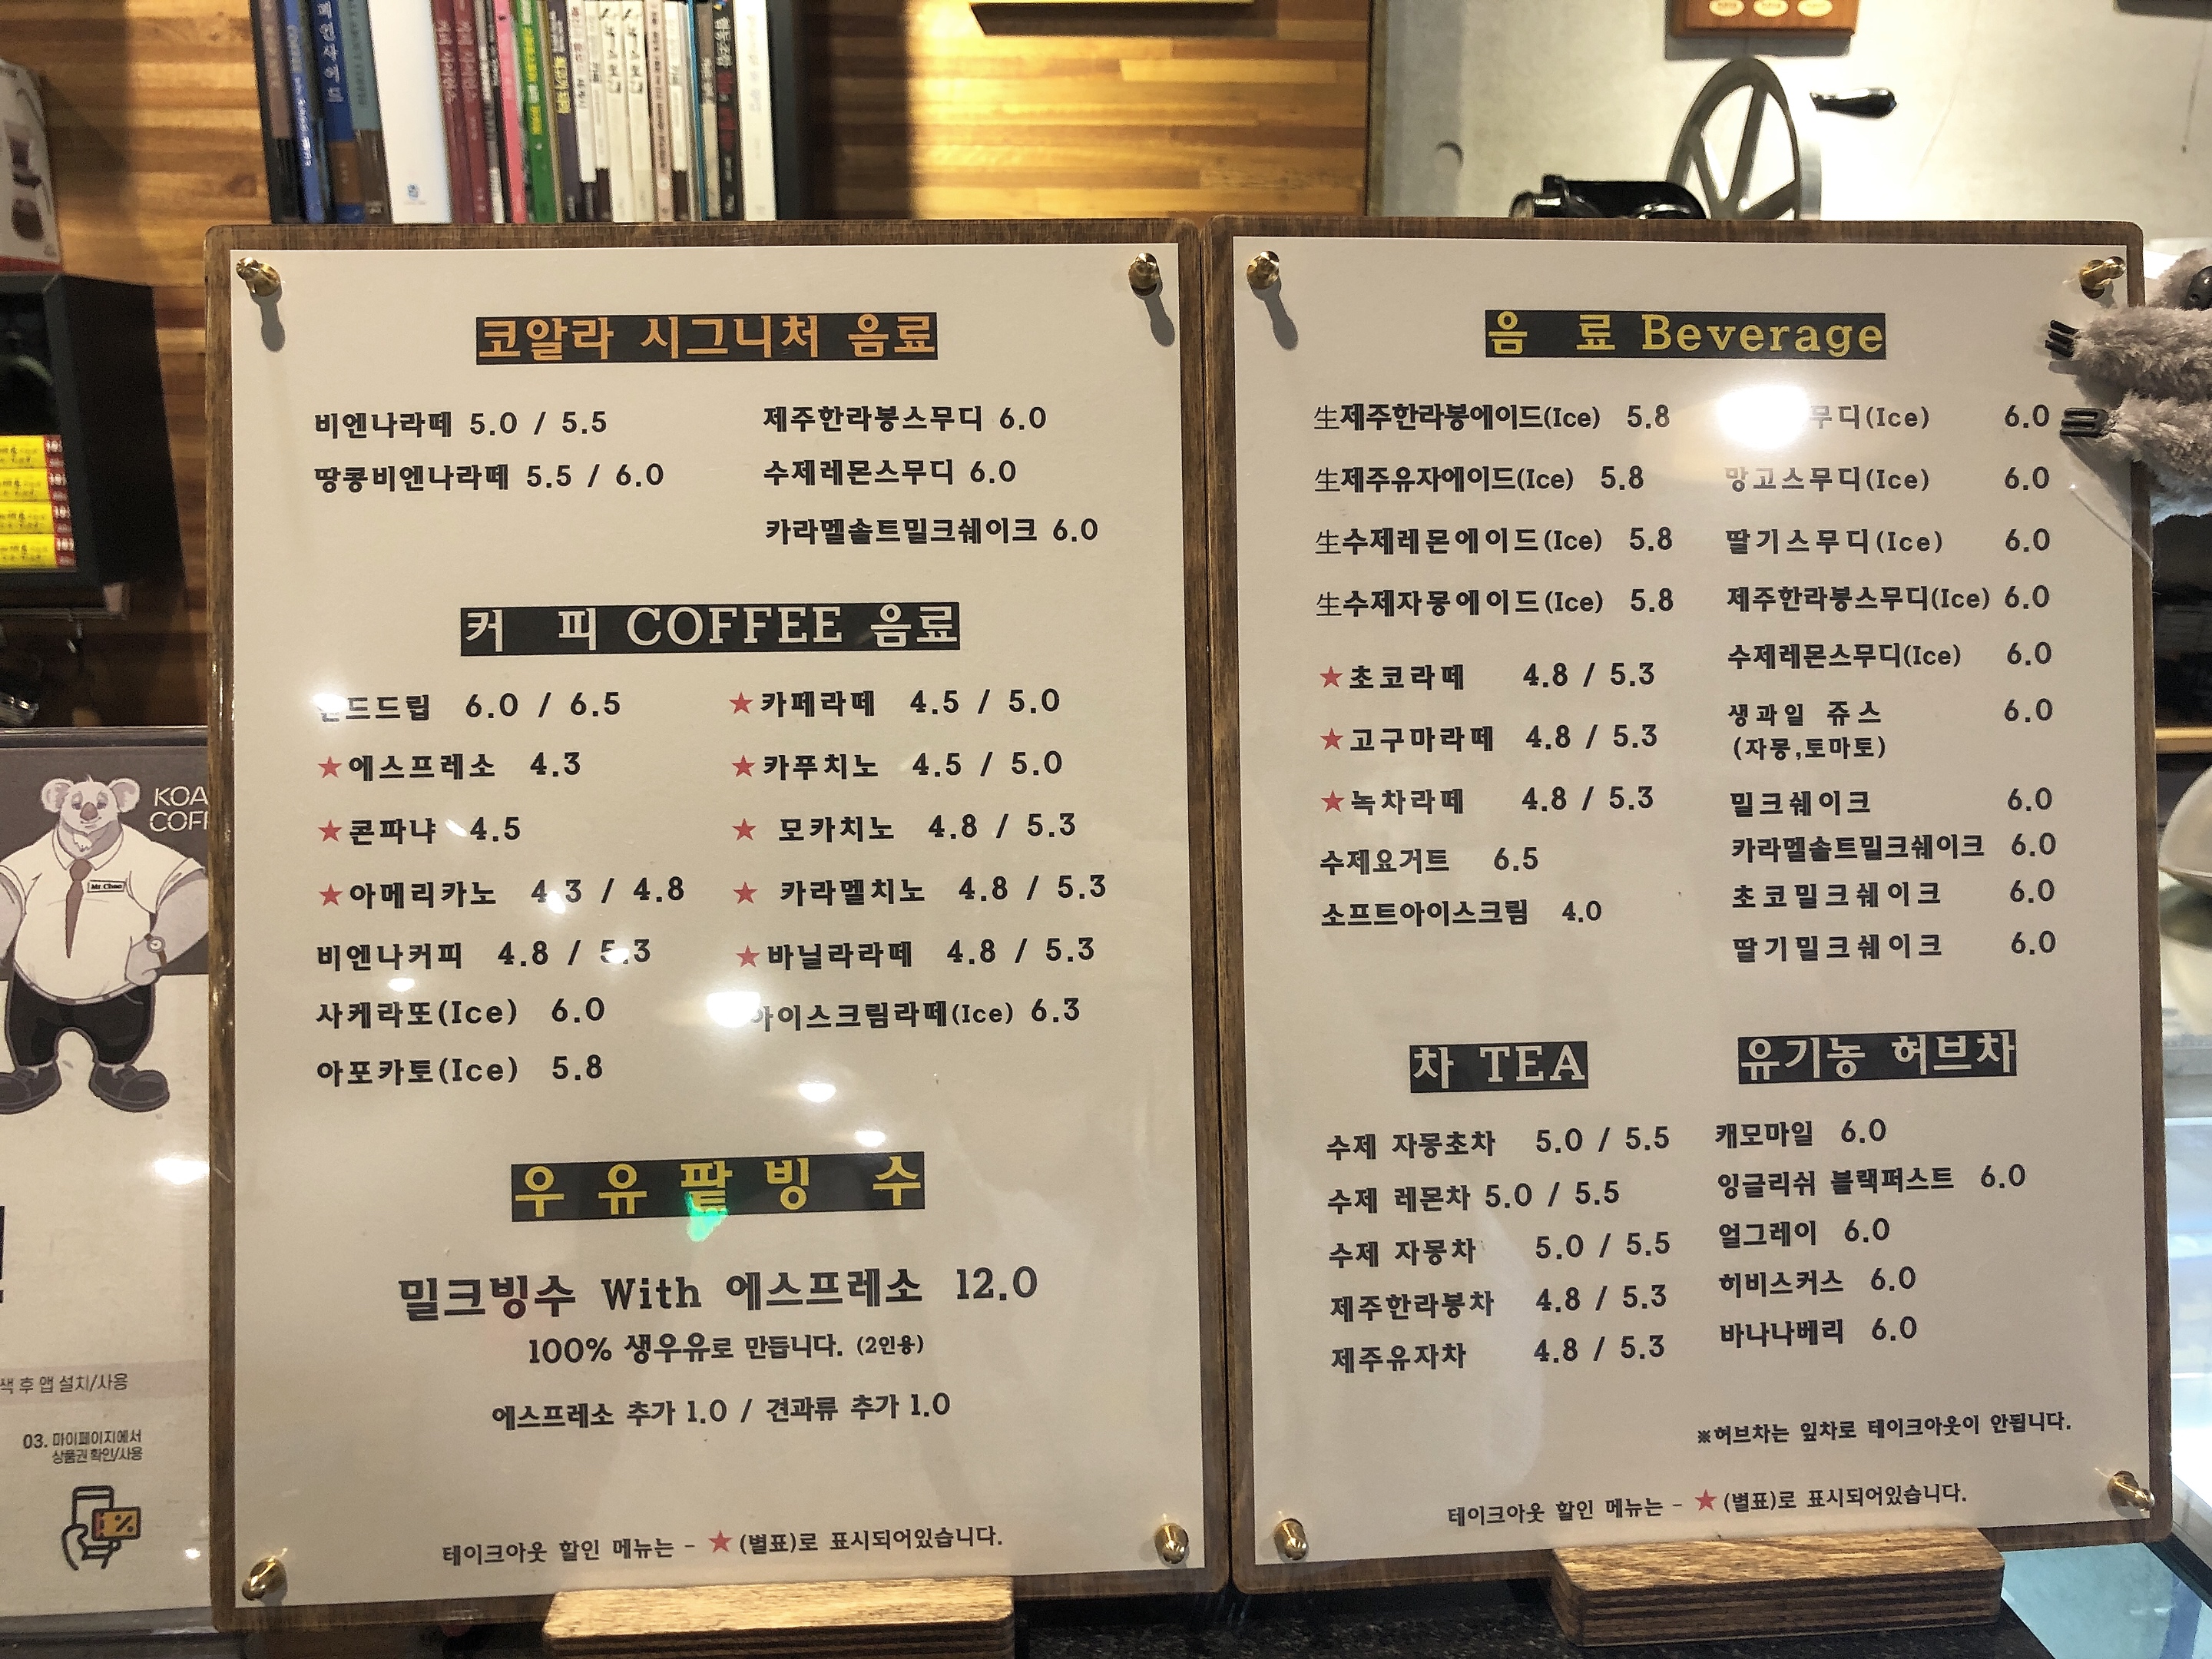 코알라 시그니처 음료
비엔나라떼 5.0 / 5.5
땅콩비엔나라떼 5.5 / 6.0
제주한라봉스무디 6.0
수제레몬스무디 6.0
카라멜솔트밀크쉐이크 6.0
커 피 COFFEE 음료
6.0 / 6.5
★에스프레소 4.3
★콘파냐 4.5
★아메리카노 4.3 / 4.8
비엔나커피 4.8 / 5.3
사케라또(Ice) 6.0
아포카토(Ice) 5.8
★카페라떼 4.5 / 5.0
★카푸치노 4.5 / 5.0
★ 모카치노 4.8 / 5.3
★ 카라멜치노 4.8 / 5.3
★바닐라라떼 4.8 / 5.3
아이스크림라떼(Ice) 6.3
우 유 팥 빙 수
밀크빙수 With 에스프레소 12.0
100% 생우유로 만듭니다. (2인용)
에스프레소 추가 1.0 / 견과류 추가 1.0
테이크아웃 할인 메뉴는 - ★(별표)로 표시되어있습니다.
음 료 Beverage
生제주한라봉에이드(Ice) 5.8
生제주유자에이드(Ice) 5.8
生수제레몬에이드(Ice) 5.8
生수제자몽에이드(Ice) 5.8
★초코라떼 4.8 / 5.3
★고구마라떼 4.8 / 5.3
★녹차라떼 4.8 / 5.3
수제요거트 6.5
소프트아이스크림 4.0
무디(Ice) 6.0
망고스무디(Ice) 6.0
딸기스무디(Ice) 6.0
제주한라봉스무디(Ice) 6.0
수제레몬스무디(Ice) 6.0
생과일 쥬스 6.0
(자몽,토마토)
밀크쉐이크 6.0
카라멜솔트밀크쉐이크 6.0
초코밀크쉐이크 6.0
딸기밀크쉐이크 6.0
차 TEA
수제 자몽초차 5.0 / 5.5
수제 레몬차 5.0 / 5.5
수제 자몽차 5.0 / 5.5
제주한라봉차 4.8 / 5.3
제주유자차 4.8 / 5.3
유기농 허브차
캐모마일 6.0
잉글리쉬 블랙퍼스트 6.0
얼그레이 6.0
히비스커스 6.0
바나나베리 6.0
※허브차는 잎차로 테이크아웃이 안됩니다.
테이크아웃 할인 메뉴는 - ★(별표)로 표시되어있습니다.
KOA
COF
Mr.Choo
색 후 앱 설치/사용
03. 마이페이지에서
상품권 확인/사용
%